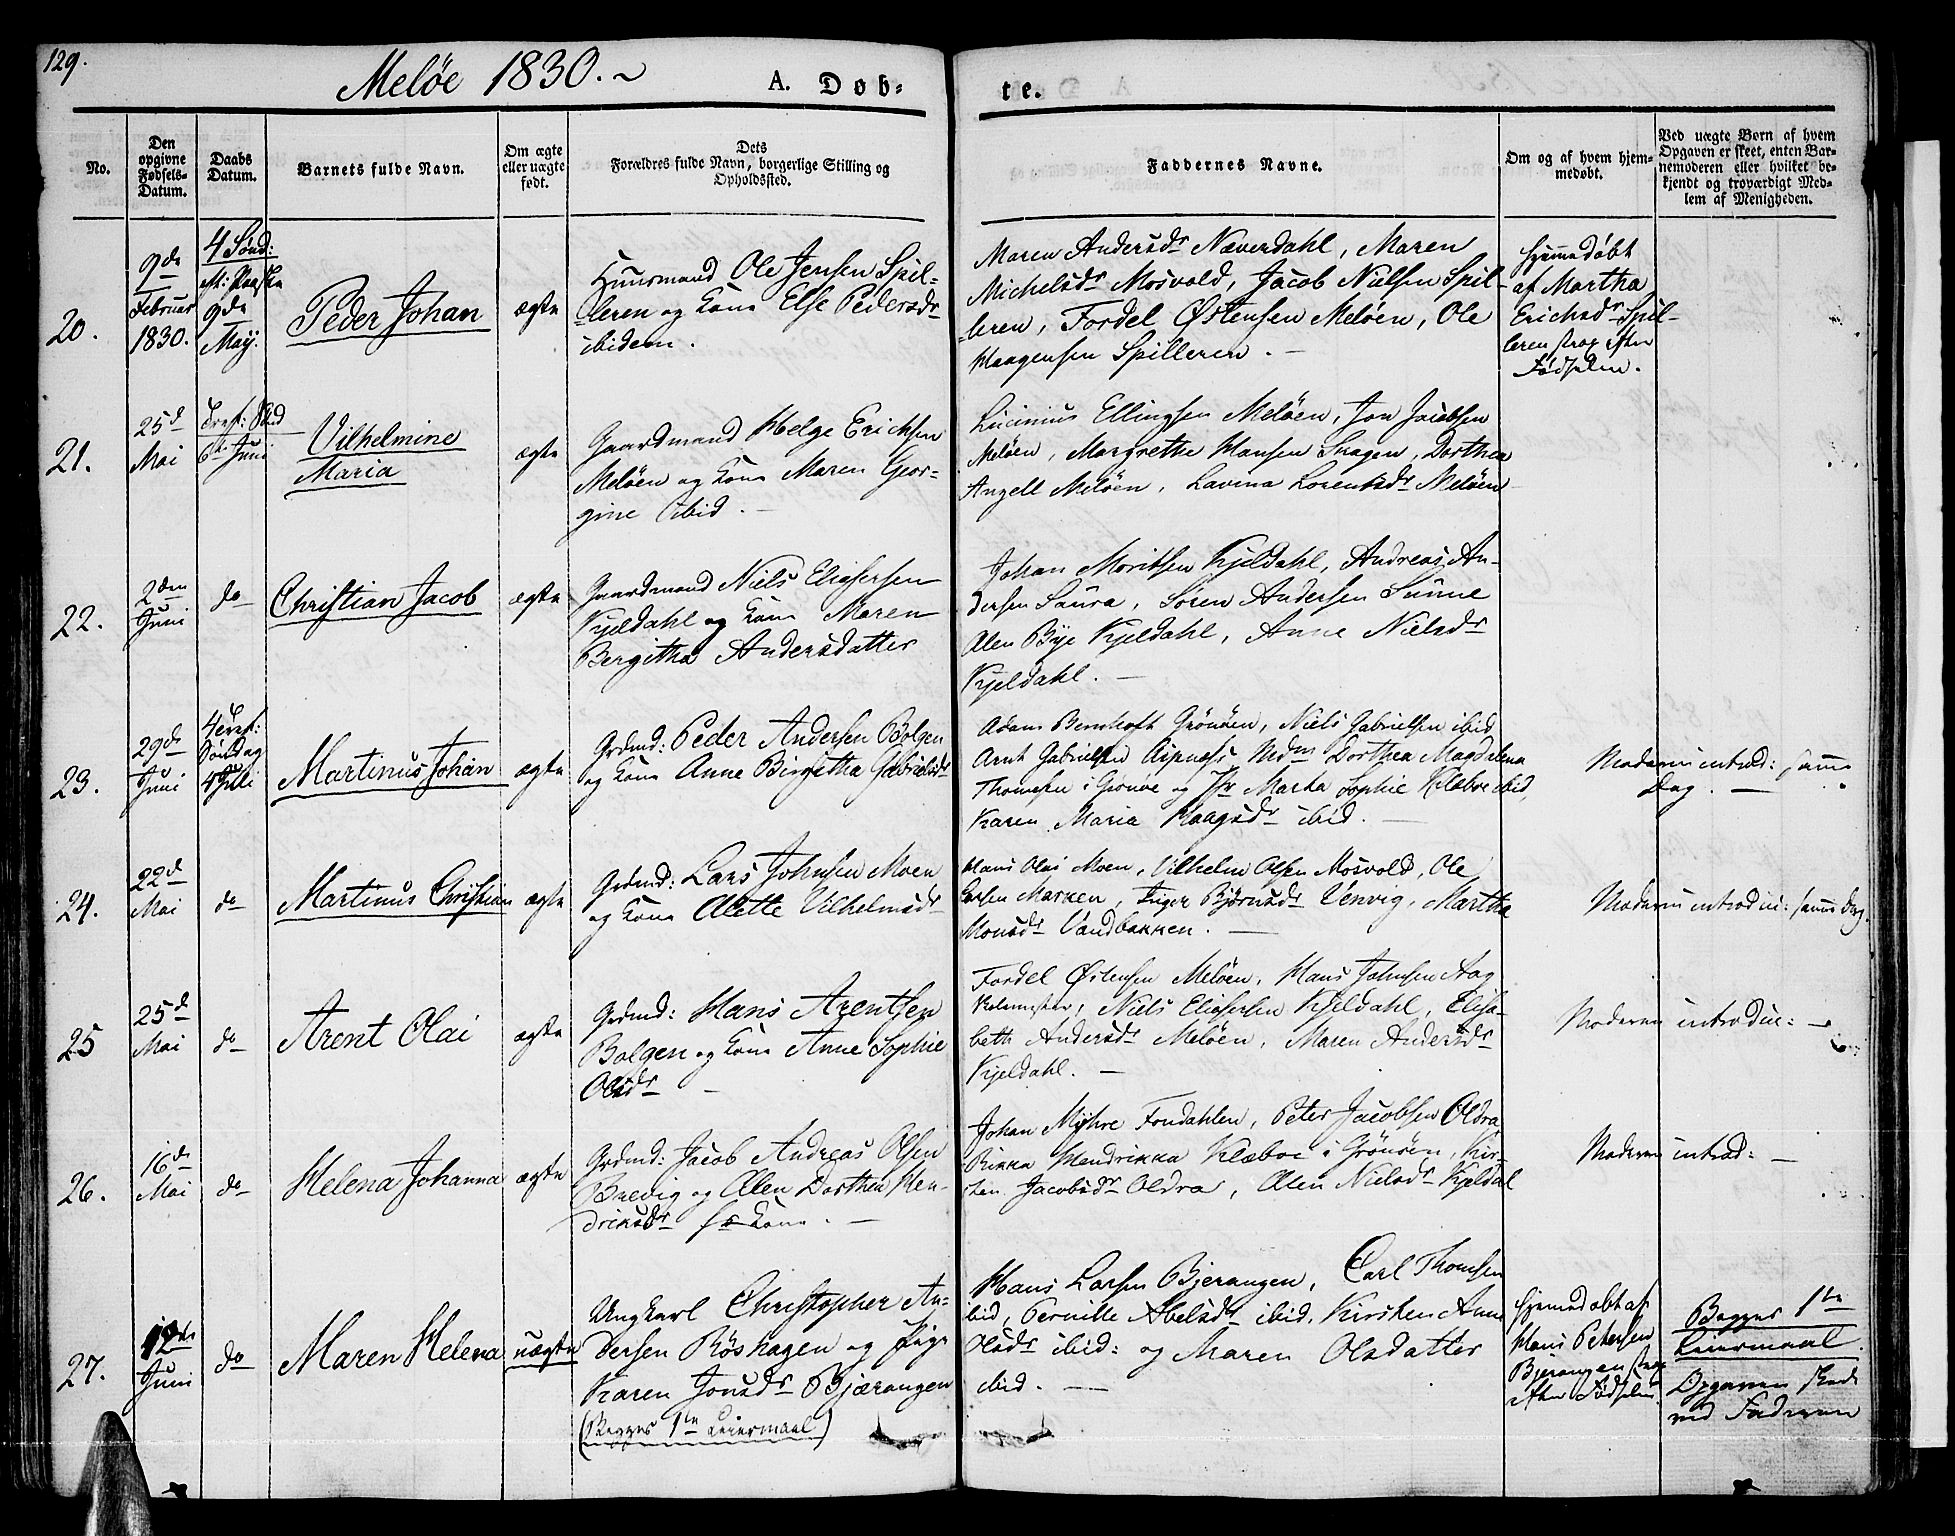 129.
Meløe 1830.~
A. Døb-
te.
No.
Den
opgivne
Fødsels-
Datum.
Daabs
Datum.
Barnets fulde Navn.
Om ægte
eller uægte
født.
Dets
Forældres fulde Navn, borgerlige Stilling og
Opholdssted.
Faddernes Navne.
Om og af hvem hjem-
medøbt.
Ved uægte Børn af hvem
Opgaven er skeet, enten Bar-
nemoderen eller hvilket be-
kjendt og troværdigt Med-
lem af Menigheden.
20.
9de
Februar
1830.
4 Sønd:
eft: Paaske
9de
Maÿ.
Peder Johan
ægte
Huusmand Ole Jensen Spil-
leren og Kone Else Pedersdr
ibidem.
Maren Andersdr Næverdahl, Maren
Michelsdr Mosvold, Jacob Nielsen Spil-
leren, Fordel Østensen Meløen, Ole
Haagensen Spilleren. -
Hjemmedøbt
af Martha
Erichsdr Spil-
leren strax efter
Fødselen.
21.
25d
Mai
Trest: Sønd
6te Juni
Vilhelmine
Maria
ægte
Gaardmand Helge Erichsen
Meløen og Kone Maren Geor-
gine ibid. -
Lucinius Ellingsen Meløen, Jon Jacobsen
Meløen, Margrethe Hansen Skagen, Dorthea
Angell Meløen, Lavina Lorentsdr Meløen
22.
2den
Juni
do
Christian Jacob
ægte
Gaardmand Niels Eliasersen
Kjeldahl og Kone Maren
Bergitha Andersdatter
Johan Moritsen Kjeldahl, Andreas An-
dersen Saura, Søren Andersen Sunne
Alen Bye Kjeldahl, Anne Nielsdr
Kjeldahl. -
23.
29de
Juni
4 Tref:
Søndag
4 Juli
Martinus Johan
ægte
Grdmd: Peder Andersen Bolgen
og Kone Anne Birgitha Gabrielsdr
Adam Bernhoft Grönöen, Niels Gabrielsen ibid
Arnt Gabrielsen Aspnæss Mdm Dorthea Magdalena
Thomesen i Grönöe og Jfr Marta Sophie Klæboe ibid,
Karen Maria Haagsdr ibid. -
Moderen introd: samme
Dag. -
24.
22d
Mai
do
Martinus Christian
ægte
Grdmd: Lars Johnsen Moen
og Kone Alette Vilhelmsdr
Hans Olai Moen, Vilhelm Olsen Mosvold, Ole
Larsen Marken, Inger Björnsdr Venvig, Martha
Monsdr Vandbakken. -
Moderen introdu: samme Dag.
25
25d
Mai
do
Arent Olai
ægte
Grdmd: Hans Arentsen
Bolgen og Kone Anne Sophie
Olsdr -
Fordel Østensen Meløen, Hans Johnsen Aag
Niels Eliasersen Kjeldahl, Elisa-
beth Andersdr Meløen, Maren Andersdr
Kjeldahl. -
Moderen introdu: -
26.
16de
Mai
do
Helena Johanna
ægte
Grdmd: Jacob Andreas Olsen
Bredvig og Alen Dorthea Hen-
driksdr hs Kone. -
Johan Myhre Fondahlen, Peter Jacobsen Oldra,
Rikka Hendrikka Klæboe i Grönöen, Kir-
sten Jacobsdr Oldra, Alen Nielsdr Kjeldal
Moderen introd: -
27.
12te
Juni
do
Maren Helena
uægte
Ungkarl Christopher An-
dersen Röshagen og Pige
Karen Jonsdr Bjærangen
(Begges 1te Leiermaal)
Hans Larsen Bjerangen, Carl Thomsen
ibid, Pernille Abelsdr ibid, Kirsten Anne
Olsdr ibid: og Maren Olsdatter
ibid. -
Hjemmedøbt af
Hans Petersen
Bjerangen strax
efter Fødselen.
Begges 1te
Leiermaal.
Opgaven skeet
ved Faderen